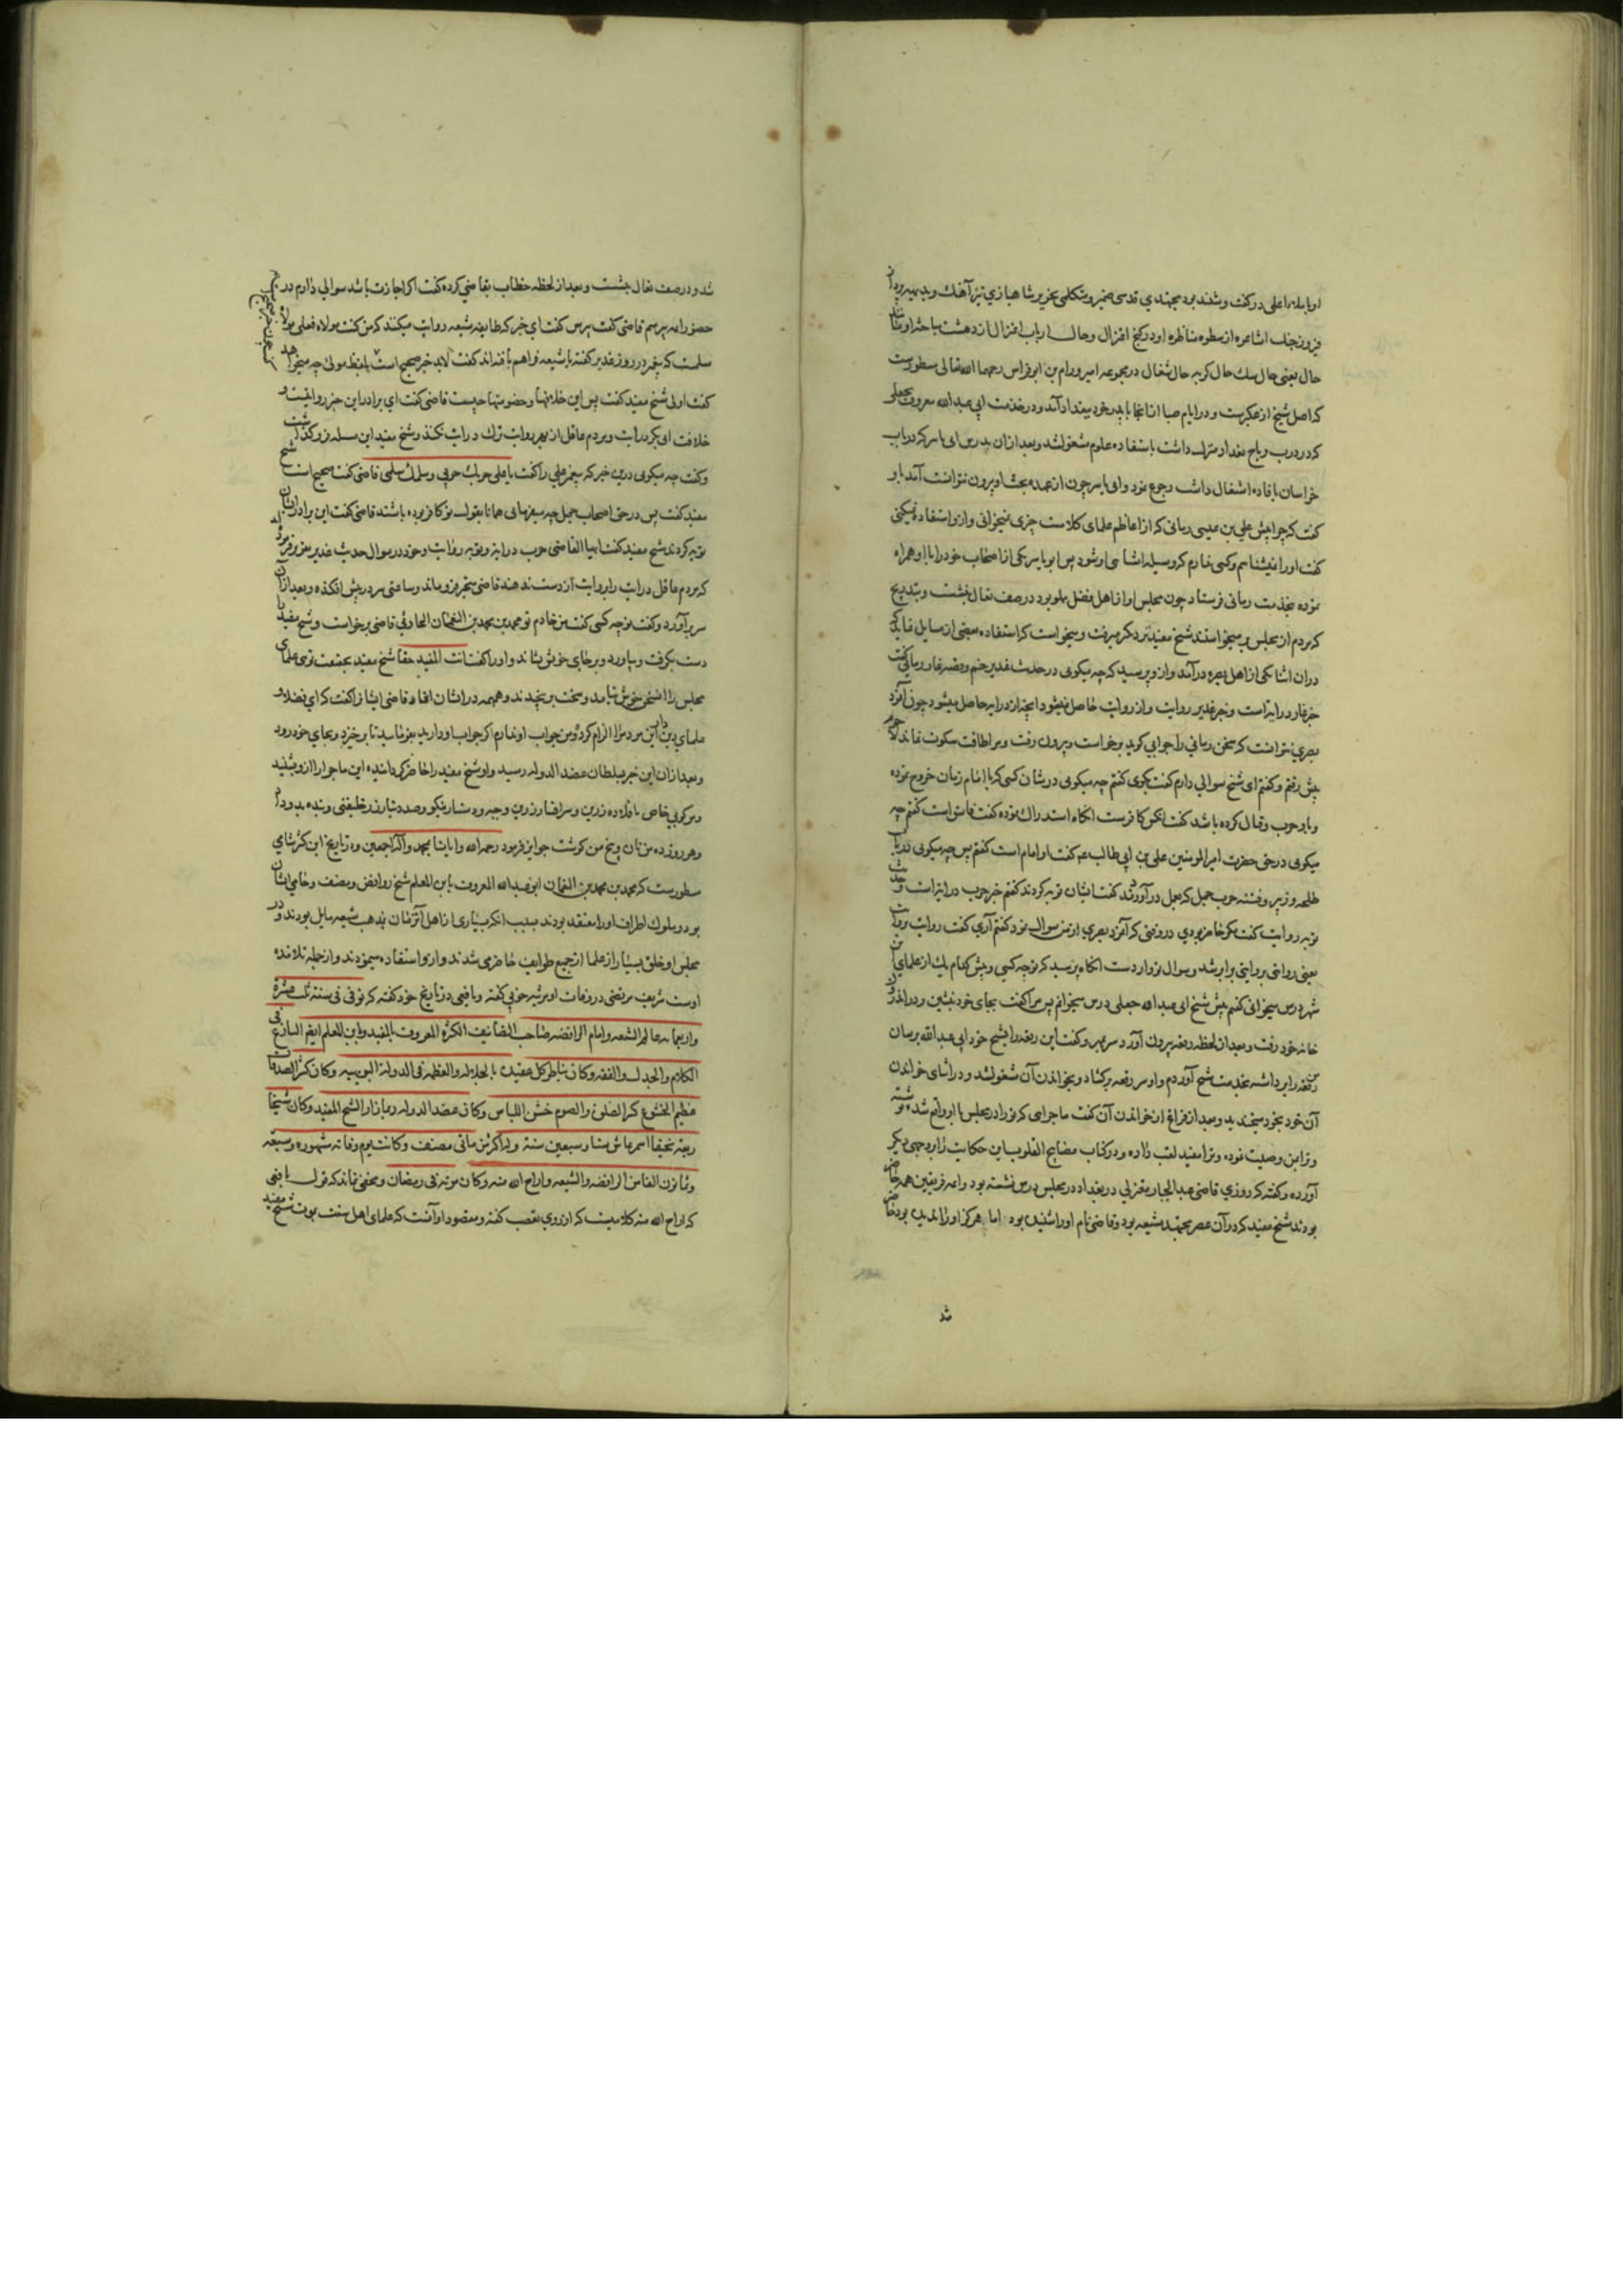 او با ملاء اعلی در گفت و شنید بود مجتهدی قدسی ضمیر و متکلمی نحریر شاهبازی تیز آهنگ و
حال یعنی حال سگ حال گربه حال شغال در مجموعه امیر ورام بن ابو فراس رحمهما الله تعالی مسطورست
که اصل شیخ از عکبرست و در ایام صبا از آنجا با پدر خود ببغداد آمد و در خدمت ابی عبد الله معروف بجعلی
که در درب رباح بغداد منزل داشت باستفاده علوم مشغول شد و بعد از آن بدرس ابی یاسر که در باب
خراسان بافاده اشتغال داشت رجوع نمود و ابی یاسر چون از عهده بحث او بیرون نتوانست آمد باو
گفت که چرا پیش علی بن عیسی رمانی که از اعاظم علمای کلامست چیزی نمیخوانی و ازو استفاده نمیکنی
گفت او را نمیشناسم و کسی ندارم که وسیله آشنائی او شود پس ابو یاسر یکی از اصحاب خود را با او همراه
نموده بخدمت رمانی فرستاد چون مجلس او از اهل فضل مملو بود در صف نعال بنشست و بتدریج
که مردم از مجلس بر میخواستند شیخ مفید نزدیکتر میرفت و میخواست که استفاده بعضی از مسایل نماید که
در آن اثنا یکی از اهل بصره درآمد و ازو پرسید که چه میگویی در حدیث غدیر خم و قصه غار رمانی گفت
خبر غار درایتست و خبر غدیر روایت و از روایت حاصل نمیشود آنچه از درایه حاصل میشود چون آنمرد
بصری نتوانست که سخن رمانی را جوابی گوید برخواست و بیرون رفت و مرا طاقت سکوت نماند لاجرم
پیش رفتم و گفتم ای شیخ سوالی دارم گفت بگوی گفتم چه میگویی در شأن کسی که با امام زمان خروج نموده
و با او حرب و قتال کرده باشد گفت آنکس کافرست آنگاه استدراک نموده گفت فاسق است گفتم چه
میگویی در حق حضرت امیر المومنین علی بن ابی طالب عم گفت او امام است گفتم پس چه میگویی در باب
طلحه و زبیر و فتنه حرب جمل که بعمل درآوردند گفت ایشان توبه کردند گفتم خبر حرب درایتست و حدیث
توبه روایت گفت مگر حاضر بودی در وقتی که آنمرد بصری از من سوال نمود گفتم آری گفت روایت بروایت
یعنی روایتی بروایتی برابر شد و سوال تو وارد است آنگاه پرسید که تو چه کسی و پیش کدام یک از علمای این
شهر درس میخوانی گفتم پیش شیخ ابی عبد الله جعلی درس میخوانم پس مرا گفت بجای خود بنشین و در اندرون
خانه خود رفت و بعد از لحظه رقعه بیرون آورد سر بمهر و گفت این رقعه را بشیخ خود ابی عبد الله برسان
من رقعه را برداشته بخدمت شیخ آوردم و او سر رقعه برگشاد و بخواندن آن مشغول شد و در اثنای خواندن
آن خود بخود میخندید و بعد از فراغ از خواندن آن گفت ماجرایی که ترا در مجلس با او واقع شده نوشته
و ترا بمن وصیت نموده و ترا مفید لقب داده و در کتاب مصابیح القلوب این حکایت را بر وجهی دیگر
آورده و گفته که روزی قاضی عبد الجبار معتزلی در بغداد در مجلس درس نشسته بود و ائمه فریقین همه حاضر
بودند شیخ مفید که در آن عصر مجتهد شیعه بود و قاضی نام او را شنیده بود اما هرگز او را ندیده بود حاضر
شد
شد و در صف نعال بنشست و بعد از لحظه خطاب بقاضی کرده گفت اگر اجازت باشد سوالی دارم در
حضور ائمه بپرسم قاضی گفت بپرس گفت این خبر که طایفه شیعه روایت میکنند که من کنت مولاه فعلی مولاه
مسلمست که پیغمبر در روز غدیر گفته یا شیعه فراهم بافته‌اند گفت لابد خبر صحیح است گفت بلفظ مولی چه میخواهد
گفت اولی شیخ مفید گفت پس این خلافها و خصومتها چیست قاضی گفت ای برادر این خبر روایتست و
خلافت ابی بکر درایت و مردم عاقل از بهر روایت ترک درایت نکند و شیخ مفید ازین مسله فرو گذاشت
و گفت چه میگویی درین خبر که پیغمبر علی را گفت یا علی حربک حربی و سلمک سلمی قاضی گفت صحیح است شیخ
مفید گفت پس در حق اصحاب جمل چه میفرمایی همانا بقول تو کافر بوده باشند قاضی گفت این برادران
توبه کردند شیخ مفید گفت ایها القاضی حرب درایة و توبه روایت و خود در سوال حدیث غدیر مقرر فرموده
که مردم عاقل درایت را بروایت از دست ندهند قاضی متحیر فرو ماند و ساعتی سر در پیش افکنده و بعد از آن
سر برآورد و گفت تو چه کسی گفت من خادم تو محمد بن محمد بن النعمان الحارثی قاضی برخواست و شیخ مفید را
دست بگرفت و بیاورد و بر جای خویش نشاند و او را گفت انت المفید حقا شیخ مفید بحقیقت تویی علمای
مجلس را این سخن خوش نیامد و سخت برنجیدند و همهمه در ایشان افتاد قاضی ایشان را گفت که ای فضلا و
علمای دین این مرد مرا الزام کرد و من جواب او ندارم اگر جواب او دارید بفرمایید تا برخیزد و بجای خود رود
و بعد از آن این خبر بسلطان عضد الدوله رسید و او شیخ مفید را حاضر گردانیده این ماجرا را ازو بشنید
و مرکوبی خاص با قلاده زرین و سرافسار زرین و جبه و دستار نیکو و صد دینار زر خلیفتی و بنده بدو داد
و هر روز ده من نان و پنج من گوشت جوایز فرمود رحمه الله و ایانا بمحمد و آله اجمعین و در تاریخ ابن کثیر شامی
مسطورست که محمد بن محمد بن النعمان ابو عبد الله المعروف بابن المعلم شیخ روافض و مصنف و حامی ایشان
بود و ملوک اطراف او را معتقد بودند بسبب آنکه بسیاری از اهل آنزمان بمذهب شیعه مایل بودند و در
مجلس او خلق بسیار از علما از جمیع طوایف حاضر می‌شدند و ازو استفاده مینمودند و از جمله تلامذه
اوست شریف مرتضی در وفات او مرثیه خوبی گفته و یافعی در تاریخ خود گفته که توفی فی سنة ثلث عشرة
واربعمایه عالم الشیعه وامام الرافضه صاحب التصانیف الکثیره المعروف بالمفید وابن المعلم ایضا البارع فی
الکلام والجدل والفقه وکان یناظر کل عقیدة بالجلاله والعظمه فی الدولة البویهیه وکان کثیر الصدقات
عظیم الخشوع کثیر الصلوة والصوم خشن اللباس وکان عضد الدوله ربما زار الشیخ المفید وکان شیخا
ربعه نحیفا اسمر عاش ستا وسبعین سنة وله اکثر من مائتی مصنف وکانت یوم وفاته مشهوره وشیعه
وثمانون الفا من الرافضه والشیعه واراح الله منه وکان موته فی رمضان و مخفی نماند که قول یافعی
که اراح الله منه کلامیست که از روی تعصب گفته و مقصود او آنست که علمای اهل سنت بموت شیخ مفید